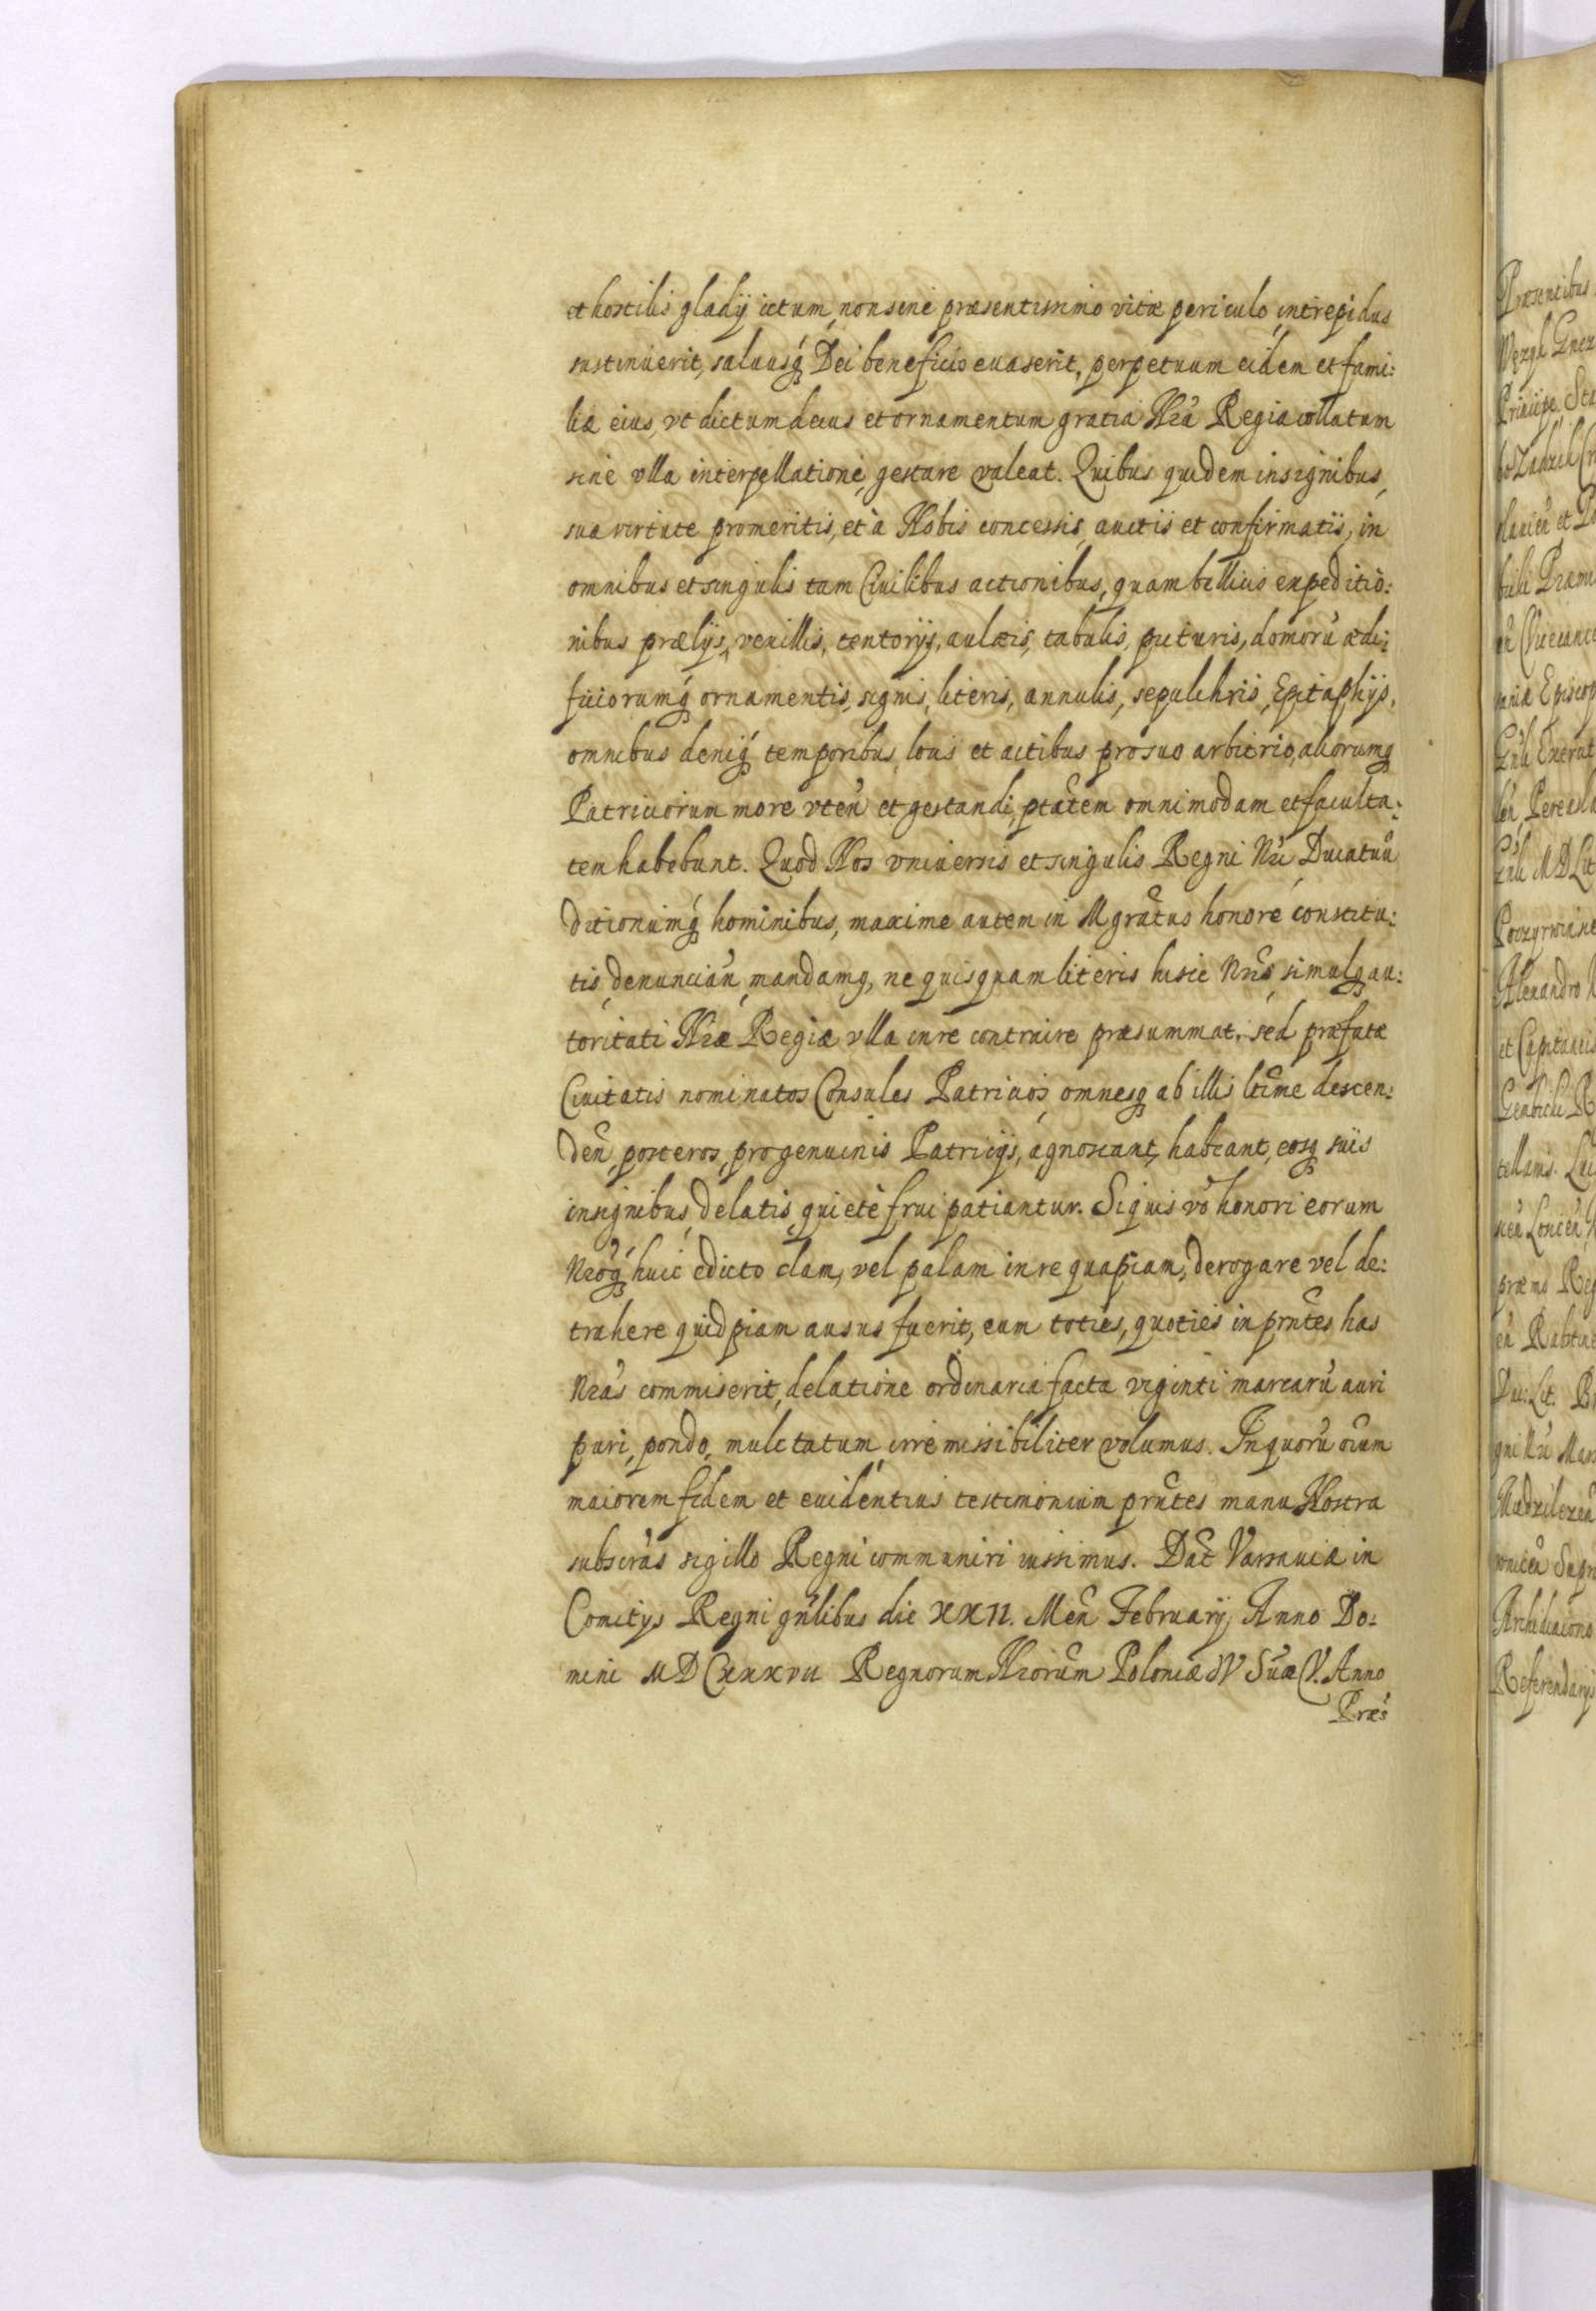 et hostilis gladij ictum, non sine præsentissimo vitæ periculo, intrepidus
sustinuerit, saluusq́ Dei beneficio euaserit, perpetuum eidem et fami:
liæ eius, vt dictum decus et ornamentum gratia Nr̃a Regia collatum
sine vlla interpellatione, gestare valeat. Quibus quidem insignibus,
sua virtute promeritis, et à Nobis concessis, auctis et confirmatis, in
omnibus et singulis tam Ciuilibus actionibus, quam bellicis expeditio:
nibus prælijs, vexillis, tentorijs, aulæis, tabulis, picturis, domorũ ædi:
ficiorumq́ ornamentis, signis, literis, annulis, sepulchris, Epitaphijs,
omnibus deniq́ temporibus, locis et actibus pro suo arbitrio, aliorumq
Patriciorum more vteñ et gestandi, ptãtem omnimodam et faculta:
tem habebunt. Quod Nos vniuersis et singulis Regni Nr̃i, Ducatuũ
ditionumq́ hominibus, maxime autem in Mgrãtus honore constitu:
tis, denunciañ, mandamq, ne quisquam literis hisce Nr̃is, simulq au:
toritati Nr̃æ Regiæ vlla in re contraire præsummat. sed præfatæ
Ciuitatis nominatos Consules Patricios, omnesq ab illis ltĩme descen:
deñ, posteros, pro genuinis Patricijs, agnoscant, habeant, eosq suis
insignibus, delatis, quiete frui patiantur. Si quis võ honori eorum
Nr̃oq́ huic edicto clam, vel palam in re quapiam, derogare vel de:
trahere quidpiam ausus fuerit, eum toties, quoties in prñtes has
Nr̃as commiserit, delatione ordinaria facta viginti marcarũ auri
puri, pondo, mulctatum irremissibiliter volumus. In quorũ oĩum
maiorem fidem et euidentius testimonium prñtes manu Nostra
subscr̃as sigillo Regni communiri iussimus. Dat̃ Varsauiæ in
Comitijs Regni gñlibus die XXII. Meñ February, Anno Do:
mini M D CXXXVII Regnorum Nr̃orum Poloniæ IV Suæ V. Anno
Præs
Præsentibus
Principe
et Po
Episcop
M D Lit
Alexandro
præmo Reg
Duc. Lit.
gni Nr̃i Mars
Supr
Archidiacono
Referendarijs